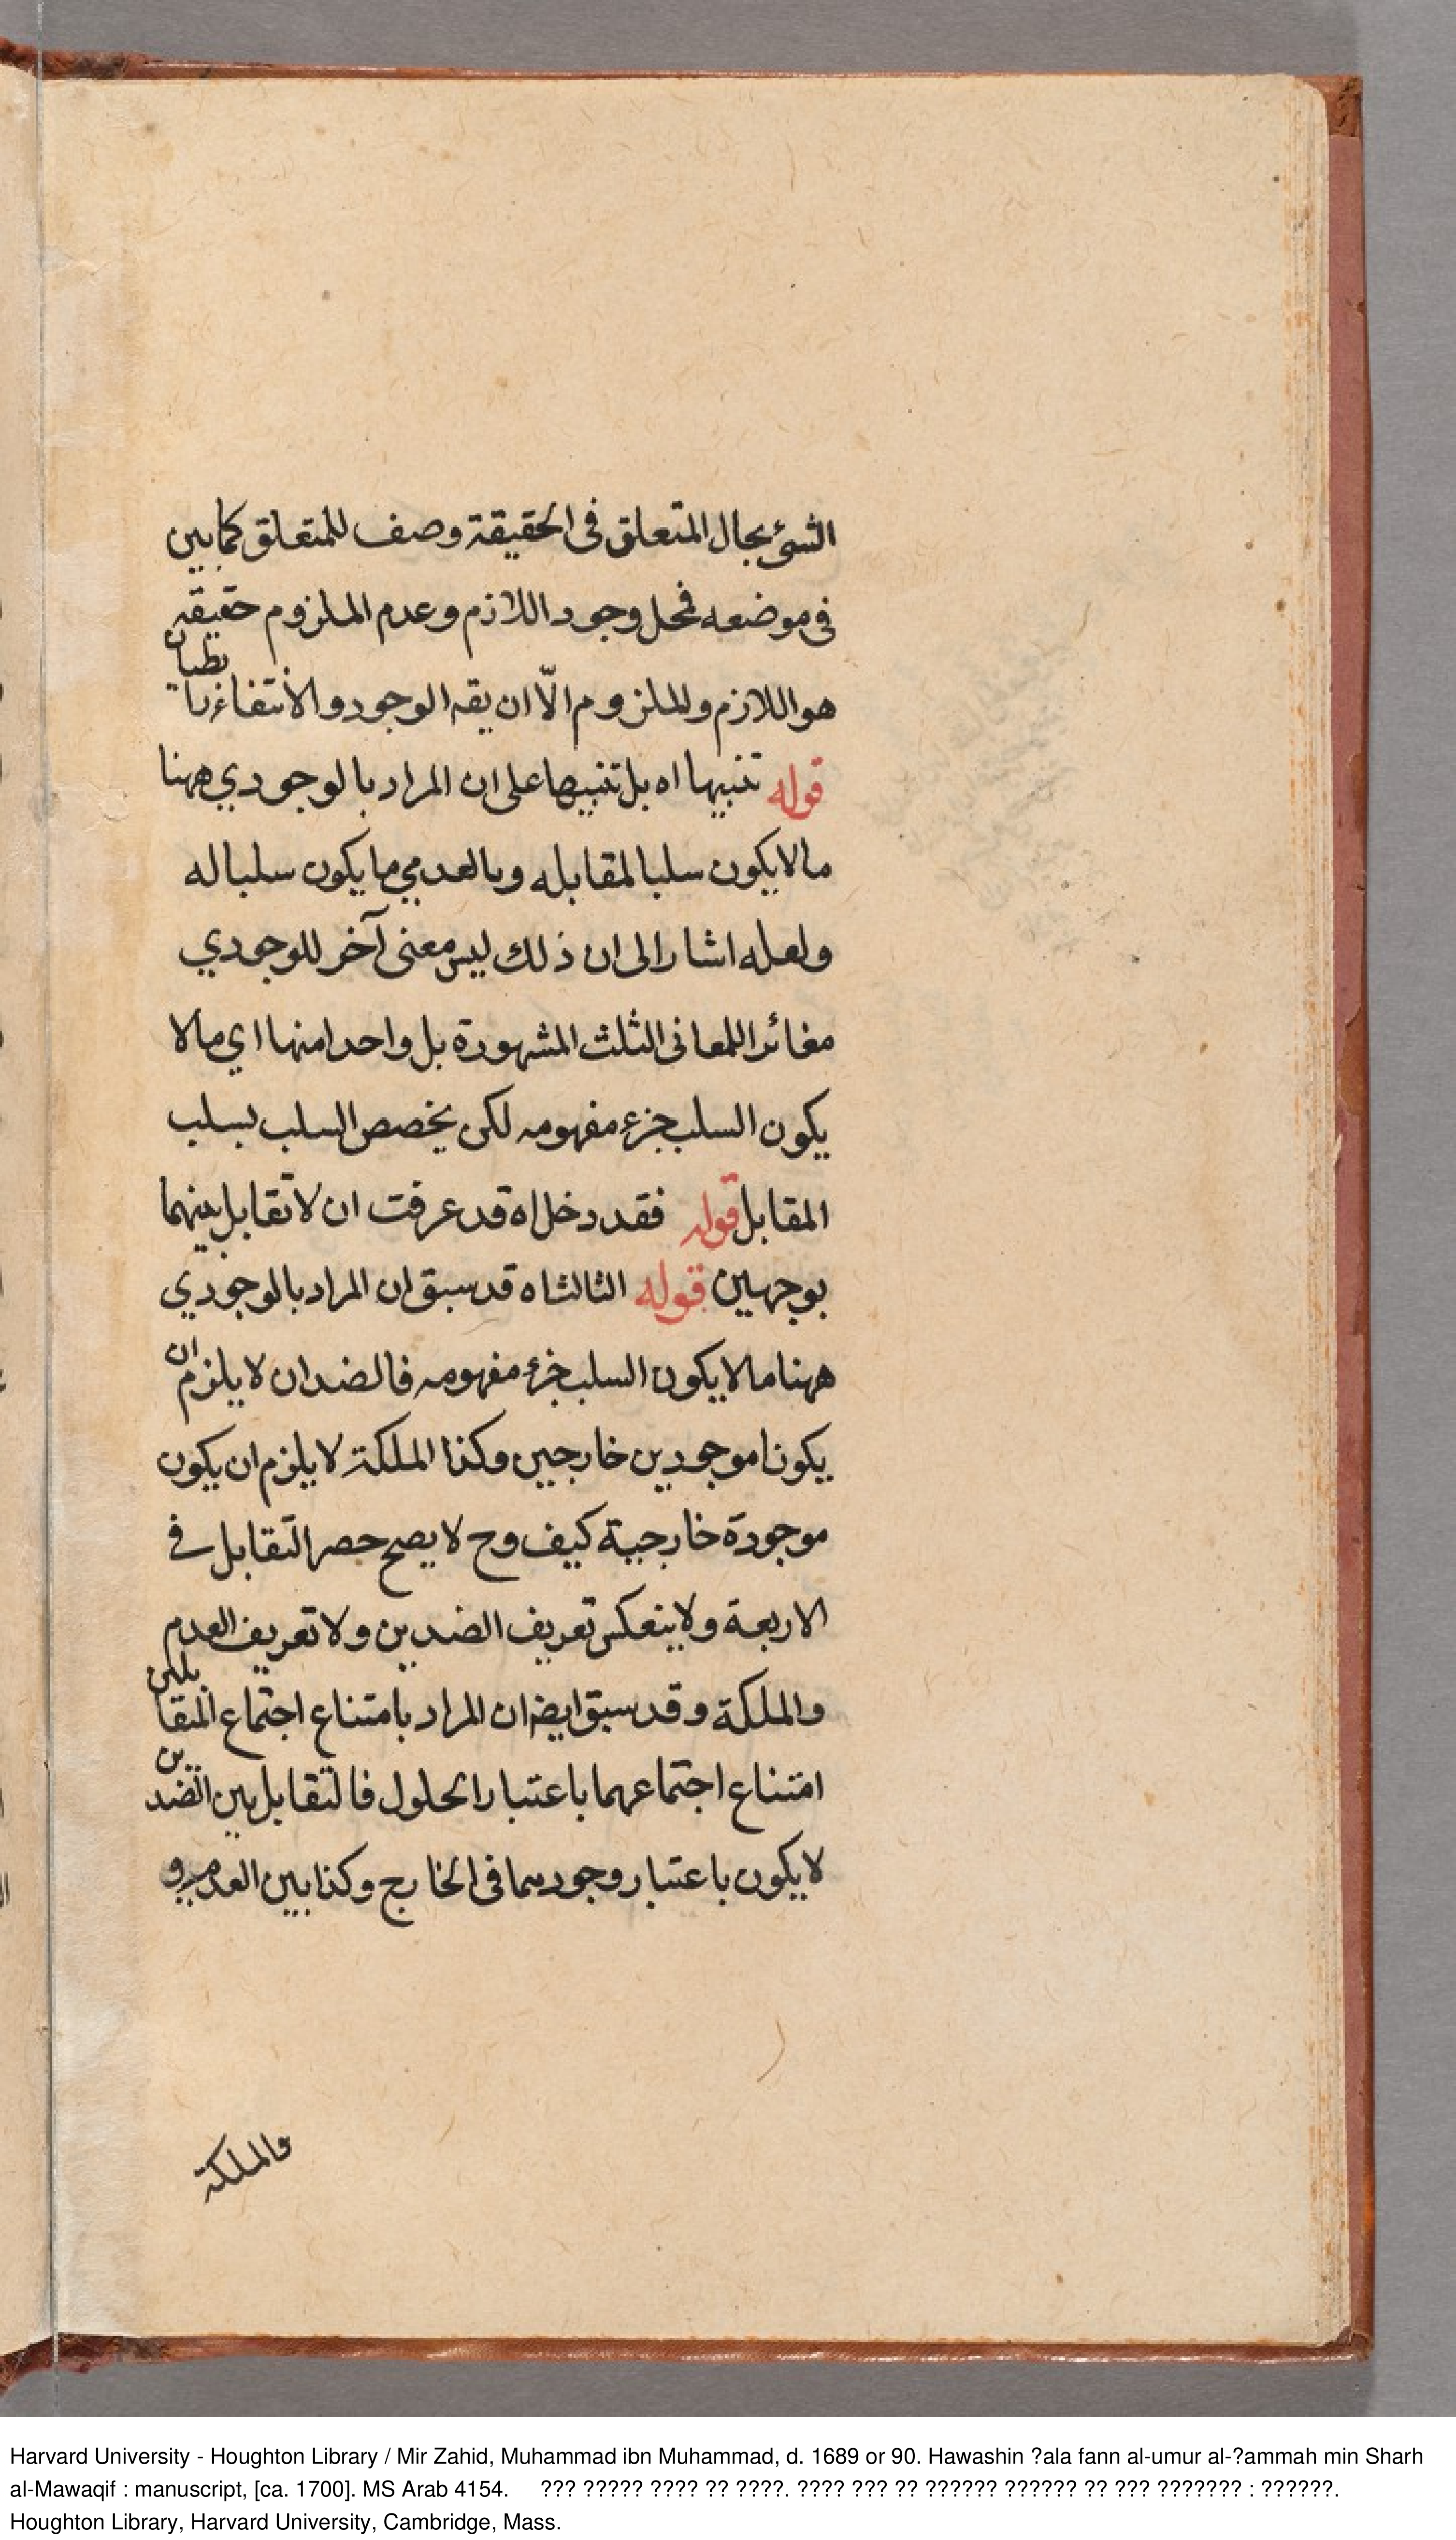 الشئ بحال المتعلق فى الحقيقة وصف للمتعلق كما بين
فى موضعه فمحل وجود اللازم وعدم الملزوم حقيقة
هو اللازم والملزوم الّا ان يقہ الوجود والانتفاء ربا بطيان
قوله تنبيها اه بل تنبيها على ان المراد بالوجودي ههنا
ما لا يكون سلبا لمقابله وبالعدمي ما يكون سلبا له
ولعله اشار الى ان ذلك ليس معنى آخر للوجودي
مغائرا للمعانى الثلث المشهورة بل واحدا منها اي ما لا
يكون السلب جزء مفهومه لكن يخصص السلب بسلب
المقابل قوله فقد دخل اه قد عرفت ان لا تقابل بينهما
بوجهين قوله الثالث اه قد سبق ان المراد بالوجودي
ههنا ما لا يكون السلب جزء مفهومه فالضدان لا يلزم ان
يكونا موجودين خارجيين وكذا الملكة لا يلزم ان يكون
موجودة خارجية كيف وح لا يصح حصر التقابل فى
الاربعة ولا ينعكس تعريف الضدين ولا تعريف العدم
والملكة وقد سبق ايضا ان المراد بامتناع اجتماع المتقابلين
امتناع اجتماعهما باعتبار الحلول فالتقابل بين الضدين
لا يكون باعتبار وجودهما فى الخارج وكذا بين العدم و
والملكة
Harvard University - Houghton Library / Mir Zahid, Muhammad ibn Muhammad, d. 1689 or 90. Hawashin ?ala fann al-umur al-?ammah min Sharh
al-Mawaqif : manuscript, [ca. 1700]. MS Arab 4154. ??? ????? ???? ?? ????. ???? ??? ?? ?????? ?????? ?? ??? ??????? : ??????.
Houghton Library, Harvard University, Cambridge, Mass.